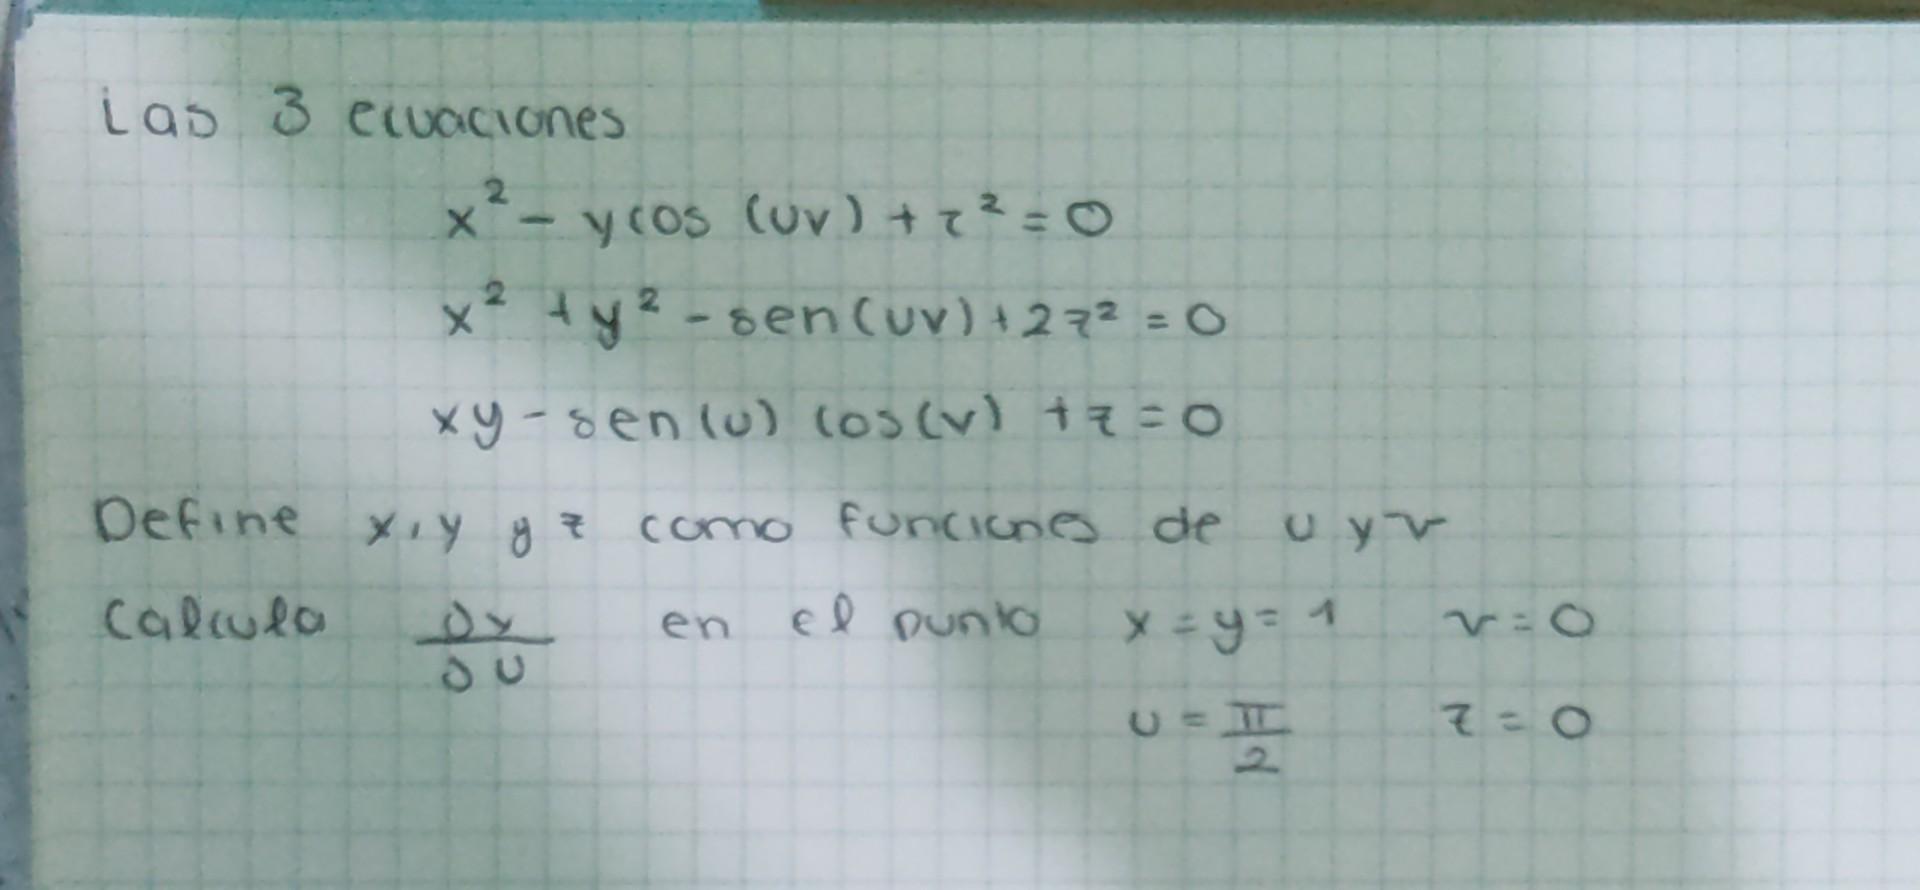 Las 3 ecuaciones
x² - y cos (uv) + z² = 0
x² + y² - sen(uv) + 2z² = 0
xy - sen(u) cos(v) + z = 0
Define x, y y z como funciones de u y v
Calcula ∂x/∂u en el punto x = y = 1 v = 0
u = π/2 z = 0